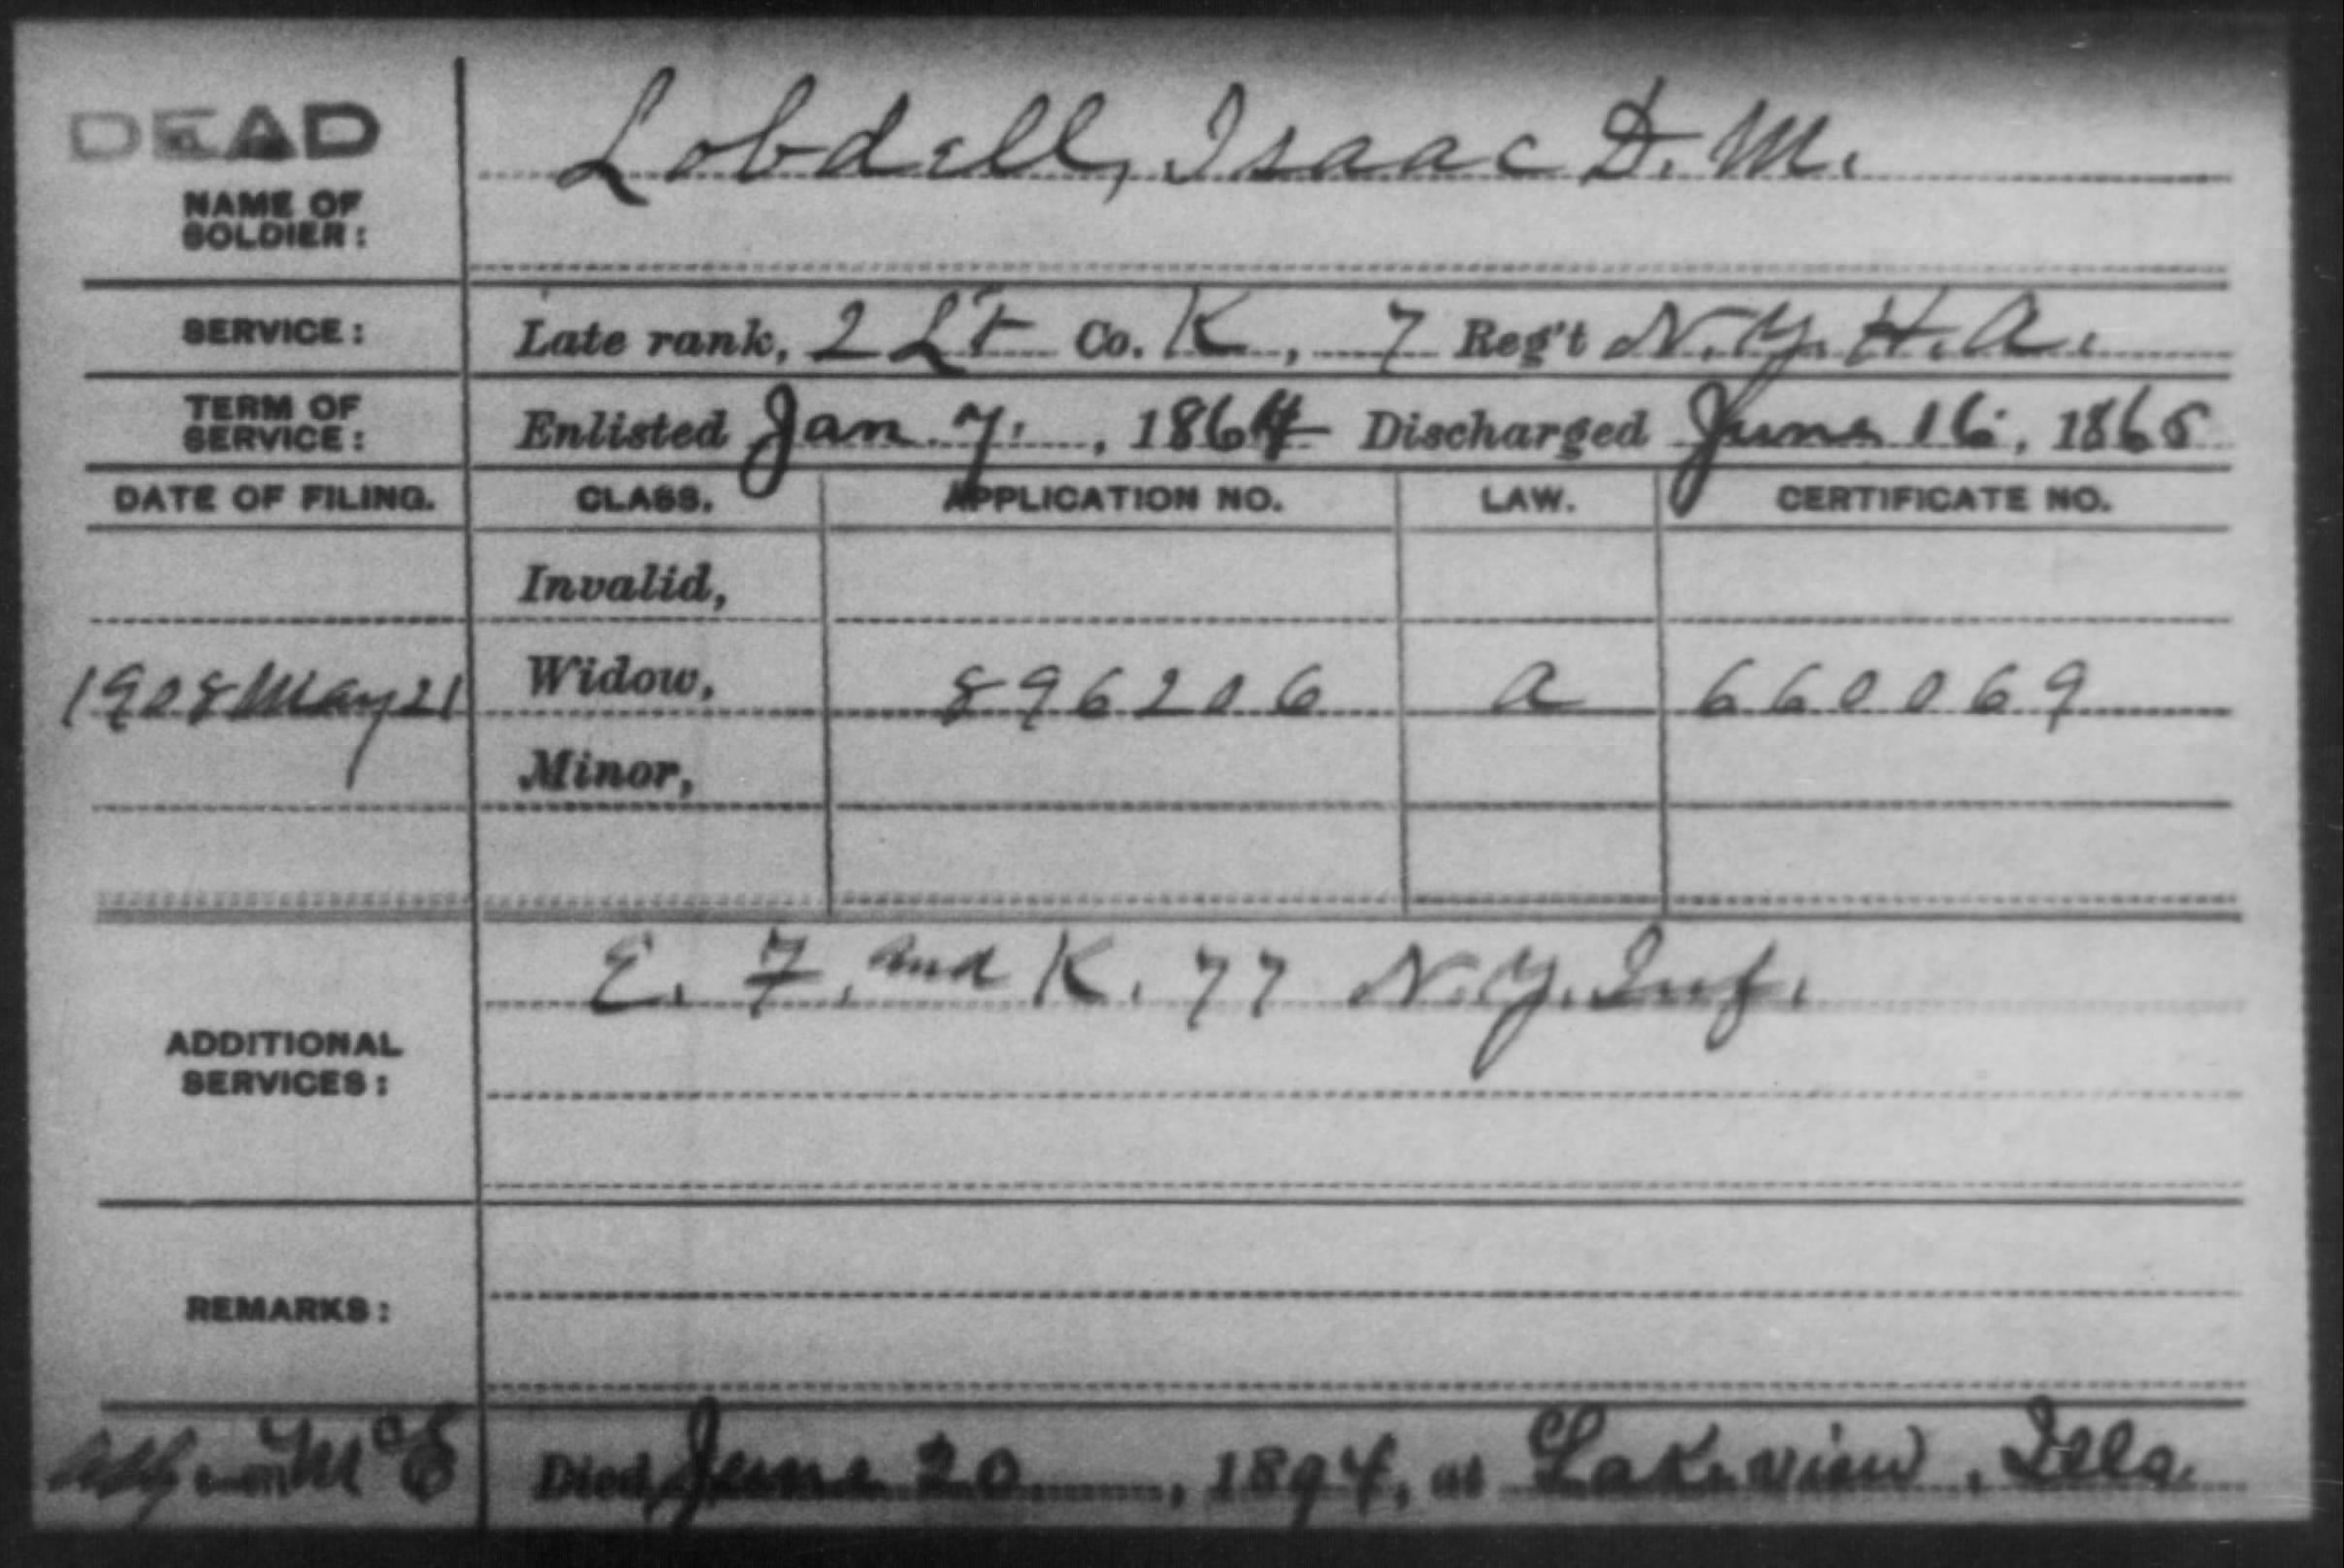 DEAD
NAME OF SOLDIER: Lobdell, Isaac D. M.
SERVICE: Late rank, 2 Lt Co. K, 7 Reg't N.Y. H.A.
TERM OF SERVICE: Enlisted Jan. 7, 1864 Discharged June 16, 1865
DATE OF FILING. CLASS. APPLICATION NO. LAW. CERTIFICATE NO.
Invalid,
1908 May 21 Widow, 896206 a 660069
Minor,
ADDITIONAL SERVICES: E. F. and K. 77 N.Y. Inf.
REMARKS:
Died June 20, 1894, at Lakeview, Ills.